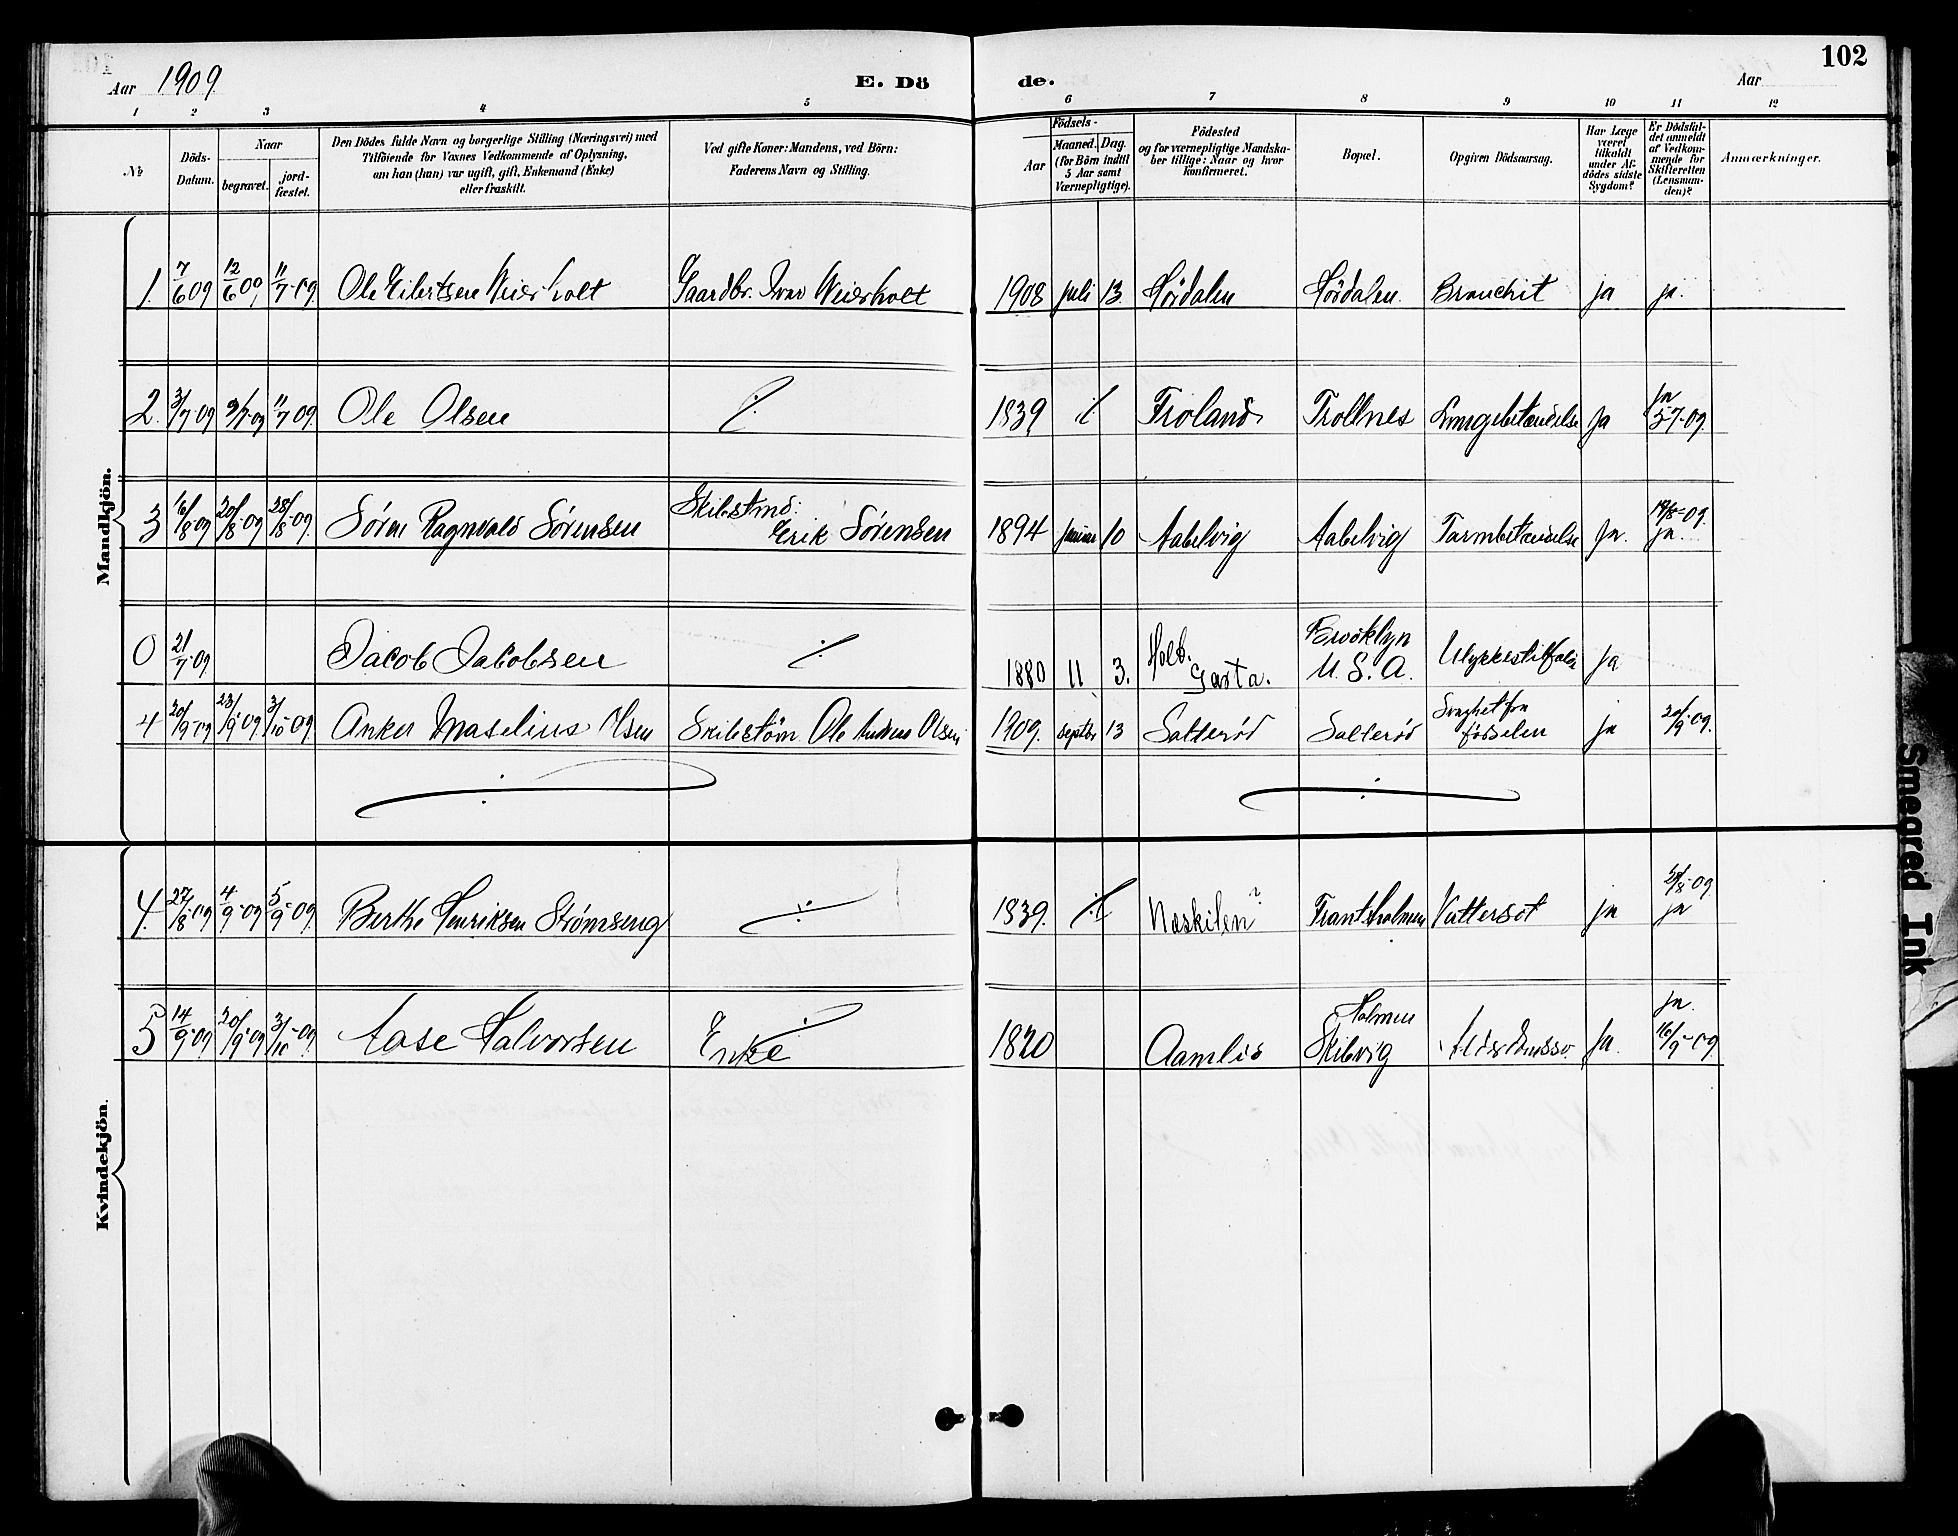 102
Aar 1909
E. Dö
de.
Aar
1 2 3 4 5 6 7 8 9 10 11 12
№
Döds-
Datum.
Naar
begravet.
jord-
fæstet.
Den Dödes fulde Navn og borgerlige Stilling (Næringsvei) med
Tilföiende for Voxnes Vedkommende af Oplysning,
om han (hun) var ugift, gift, Enkemand (Enke)
eller fraskilt.
Ved gifte Koner: Mandens, ved Börn:
Faderens Navn og Stilling.
Födsels-
Aar
Maaned.
Dag.
(for Börn indtil
5 Aar samt
Værnepligtige).
Födested
og for værnepligtige Mandska-
ber tillige: Naar og hvor
konfirmeret.
Bopæl.
Opgiven Dödsaarsag.
Har Læge
været
tilkaldt
under Af-
dödes sidste
Sygdom?
Er Dödsfal-
det anmeldt
af Vedkom-
mende for
Skifteretten
(Lensman-
den)?
Anmærkninger.
Mandkjön.
1. 7/6 09 12/6 09 11/7-09 Ole Eilertsen Weierholt Gaardbr. Ivar Weierholt 1908 juli 13 Hördalen Hördalen Bronchit ja ja.
2. 3/7-09 9/7-09 11/7 09. Ole Olsen 1839 Froland Trollnes Lungebetændelse ja ja
5-7-09.
3 16/8 09 20/8-09 28/8-09. Søren Ragnvald Sørensen Skibstmd.
Erik Sørensen 1894 januar 10 Aabelvig Aabelvig Tarmbetændelse ja. 19/8-09.
ja.
0 21/7-09 Jacob Jacobsen 1880 11 3. Holt.
Garta. Brooklyn
U. S. A. Ulykkestilfælde ja
4 20/9-09 23/9-09 3/10-09 Anker Maselius Olsen Skibstøm. Ole Andreas Olsen 1909. septbr 13 Salterød Salterød Svaghet fra
fødselen ja 20/9-09.
Kvindekjön.
4. 27/8-09 4/9-09 5/9-09. Berthe Henriksen Strømseng 1839. Næskilen? Frantsholmen Vattersot ja 28/8-09
ja
5 14/9-09 20/9-09 3/10-09 Aase Halvorsen Enke 1820 Aamlid Holmen
Skibvig ja. ja.
16/9-09.
Smeared Ink